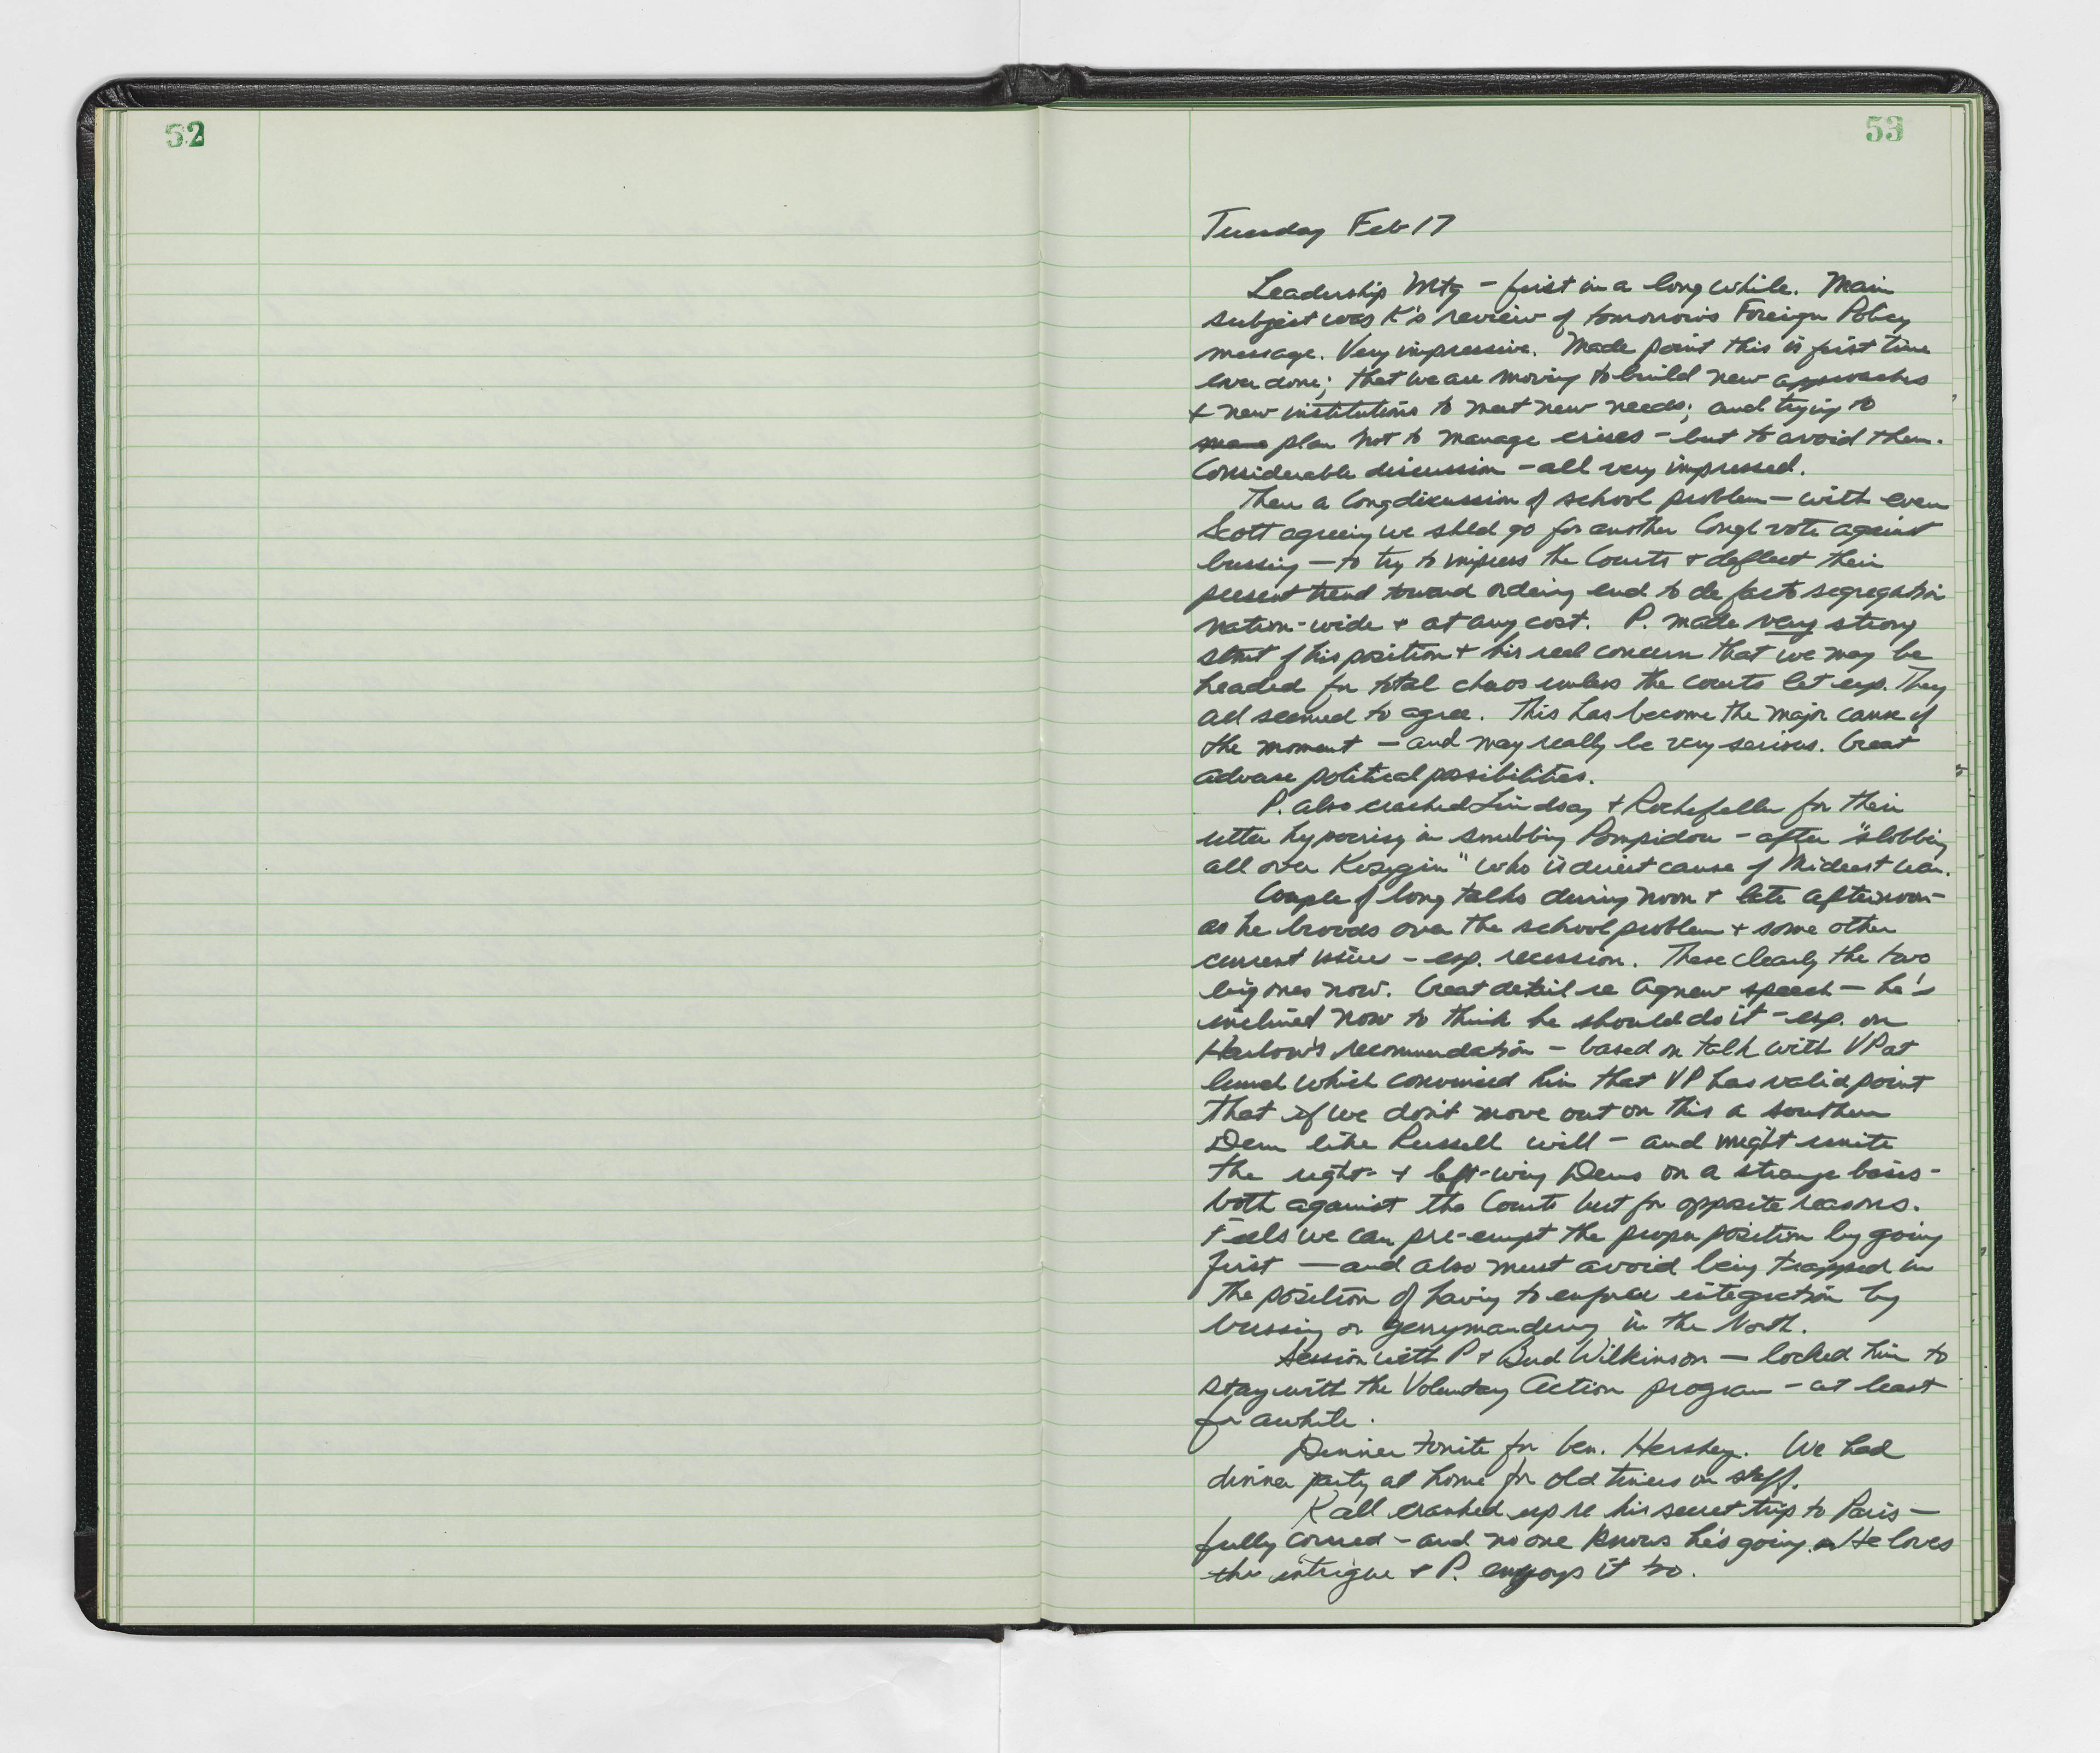 52
53
Tuesday Feb 17
Leadership Mtg - first in a long while. Main
subject was K's review of tomorrow's Foreign Policy
message. Very impressive. Made point this is first time
ever done; that we are moving to build new approaches
+ new institutions to meet new needs; and trying to
plan not to manage crises - but to avoid them.
Considerable discussion - all very impressed.
Then a long discussion of school problem - with even
Scott agreeing we shld go for another Congl vote against
bussing - to try to impress the Courts + deflect their
present trend toward ordering end to de facto segregation
nation-wide + at any cost. P. made very strong
stmt of his position + his real concern that we may be
headed for total chaos unless the courts let up. They
all seemed to agree. This has become the major cause of
the moment - and may really be very serious. Great
adverse political possibilities.
P. also crashed Lindsay + Rockefeller for their
utter hypocrisy in snubbing Pompidou - after "slobbing
all over Kosygin" who is direct cause of Mideast war.
Couple of long talks during noon + late afternoon -
as he broods over the school problem + some other
current issues - esp. recession. These clearly the two
big ones now. Great detail re Agnew speech - he's
inclined now to think he should do it - esp. on
Harlow's recommendation - based on talk with VP at
lunch which convinced him that VP has valid point
that if we don't move out on this a southern
Dem like Russell will - and might unite
the right- + left-wing Dems on a strange basis -
both against the Courts but for opposite reasons.
Feels we can pre-empt the proper position by going
first - and also must avoid being trapped in
the position of having to enforce integration by
bussing or gerrymandering in the North.
Session with P + Bud Wilkinson - locked him to
stay with the Voluntary Action program - at least
for awhile.
Dinner tonite for Gen. Hershey. We had
dinner party at home for old timers on staff.
K all cranked up re his secret trip to Paris -
fully covered - and no one knows he's going. He loves
the intrigue + P. enjoys it too.